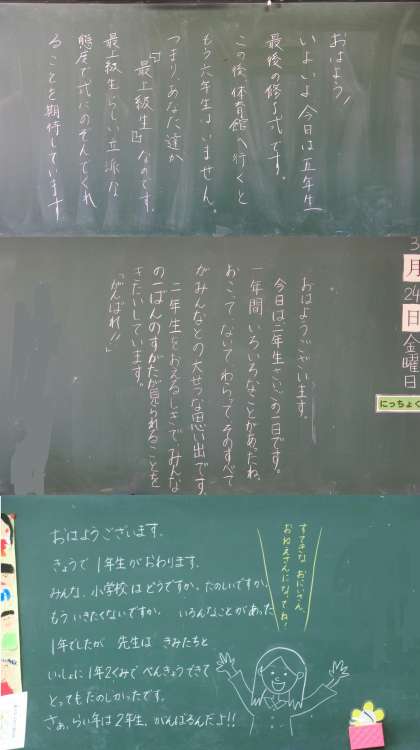 おはよう！
いよいよ今日は五年生
最後の修了式です。
この後体育館へ行くと
もう六年生はいません。
つまり、あなた達が
「最上級生」なのです。
最上級生らしい立派な
態度で式にのぞんでくれ
ることを期待しています
3
月
24
日
金
曜
日
にっちょく
おはようございます。
今日は二年生さいごの一日です。
一年間いろいろなことがあったね。
おこって、ないて、わらって、そのすべて
がみんなとの大せつな思い出です。
二年生をおえるしきで、みんな
の一ばんのすがたが見られることを
きたいしています。
「がんばれ!!」
おはようございます。
きょうで1年生がおわります。
みんな、小学校はどうですか、たのしいですか、
もういきたくないですか。いろんなことがあった
1年でしたが先生はきみたちと
いっしょに1年2くみでべんきょうできて
とってもたのしかったです。
さぁ、らい年は2年生、がんばるんだよ!!
すてきなおにいさん、
おねえさんになってね!